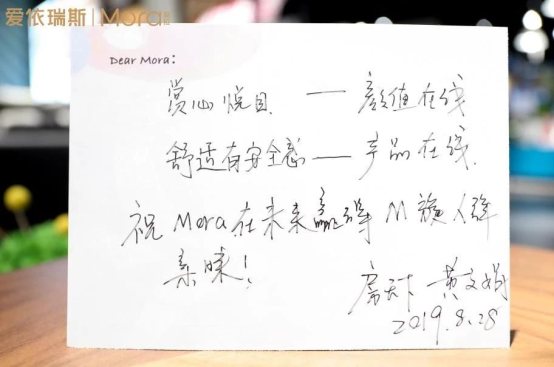 爱依瑞斯 | Mora
Dear Mora:
赏心悦目 — 颜值在线
舒适有安全感 — 产品在线
祝Mora在未来赢得M族人群
亲睐!
房天下 黄文娟
2019.8.28